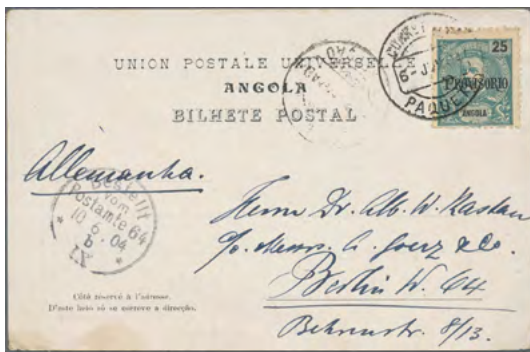 UNION POSTALE UNIVERSELLE
ANGOLA
BILHETE POSTAL
25
PROVISORIO
ANGOLA
PAQUE
Allemanha.
Bestellt
vom
Postamte 64
10 6. 04
b
IX
Herrn Dr. Alb. W. Kastan
p/o. Messrs. A. Goerz & Co.
Berlin W. 64
Behrenstr. 8/13.
Côté réservé à l'adresse.
D'este lado só se escreve a direcção.